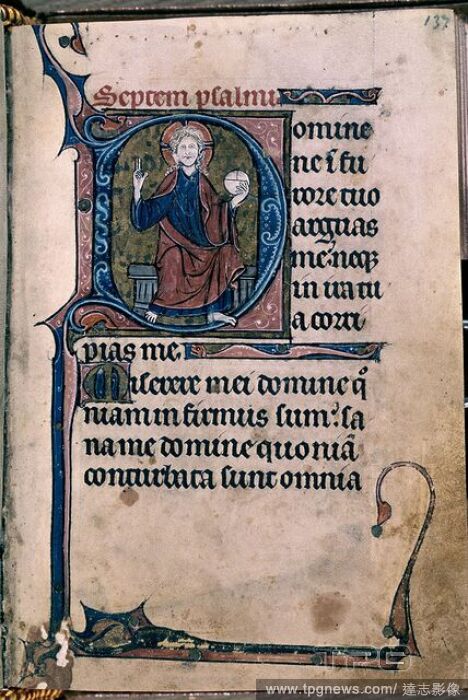 137
Septem psalmi
Domine
ne ĩ fu
rore tuo
arguas
me: neqꝫ
in ira tu
a corri
pias me.
Miserere mei domine qm̃
niam infirmus sum: sa
na me domine quoniã
conturbata sunt omnia
TPG
www.tpgnews.com/ 達志影像